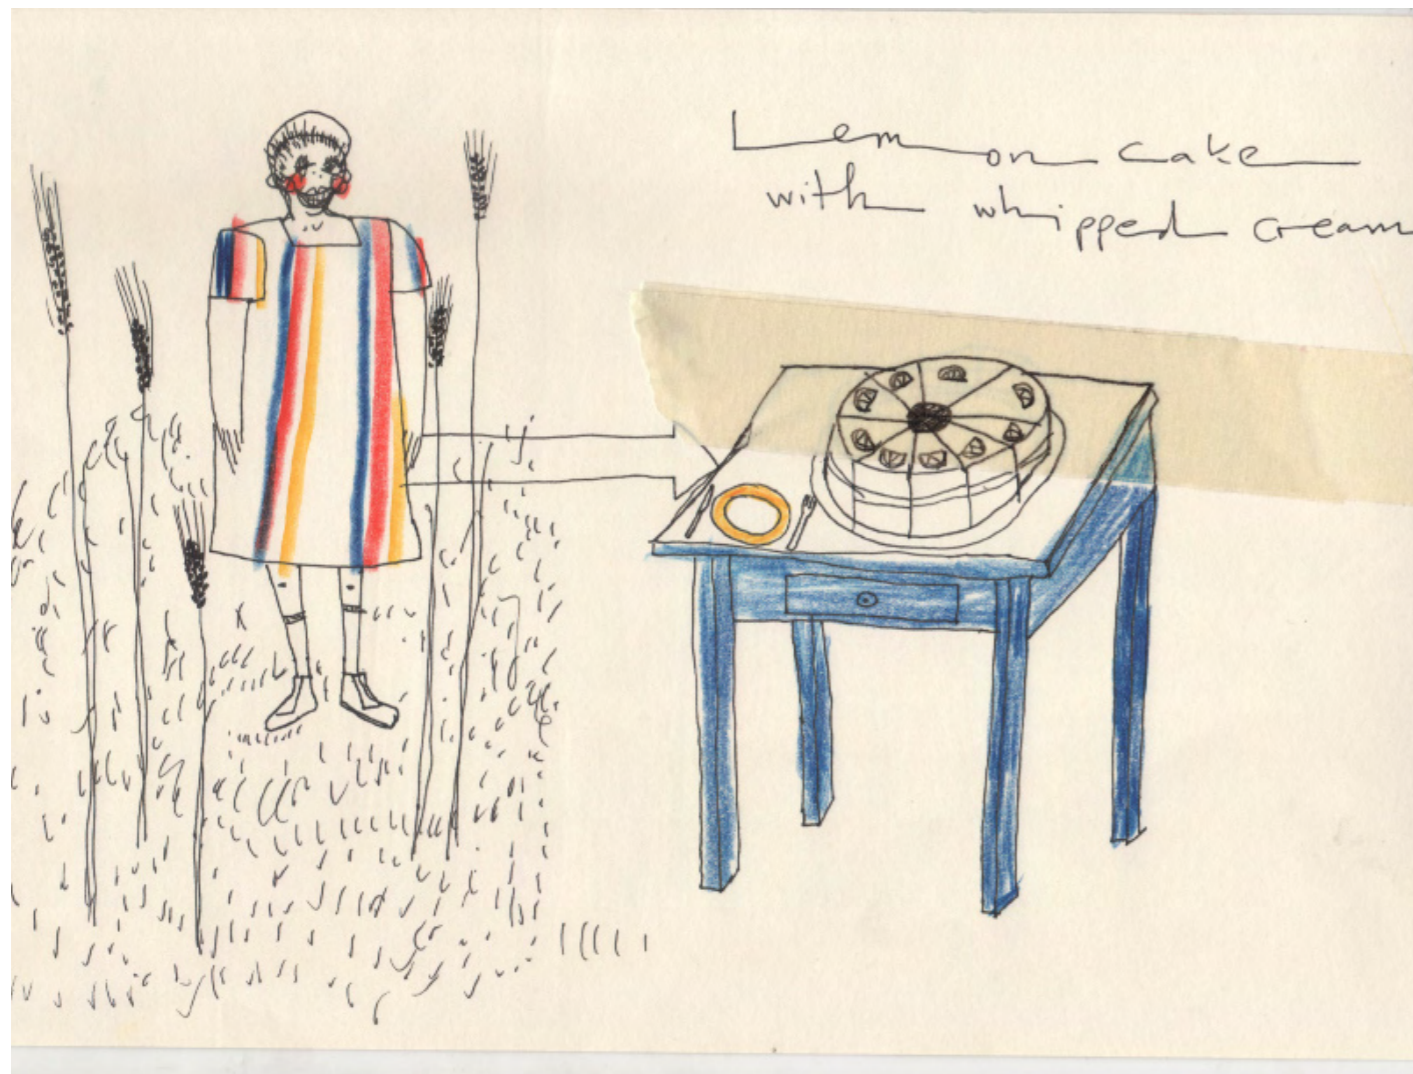 Lemon cake
with whipped cream